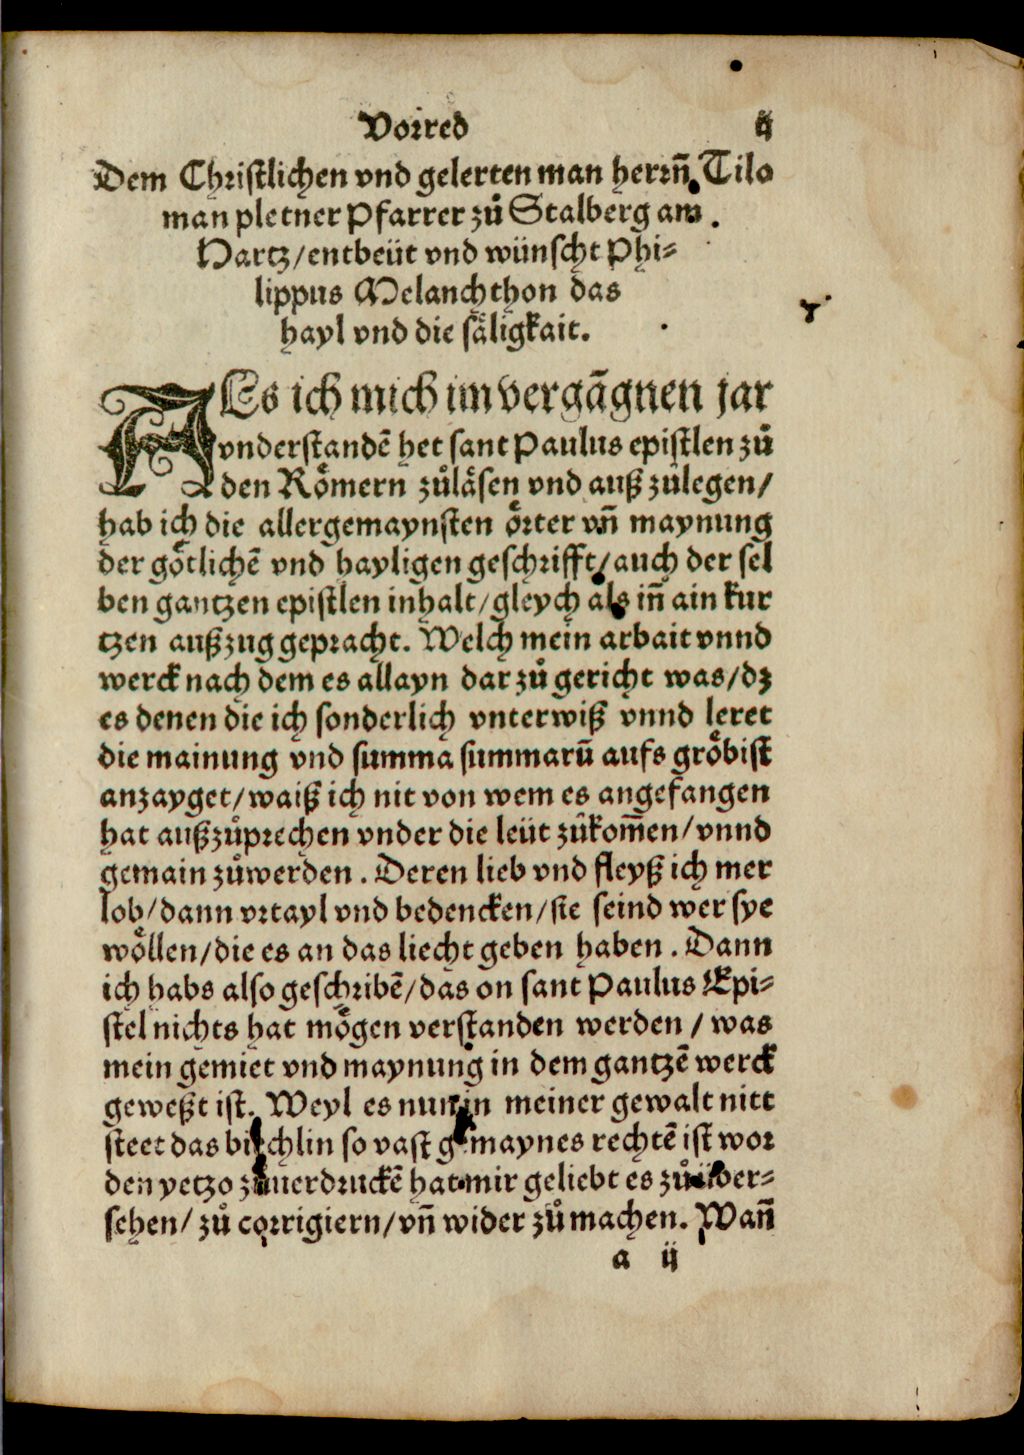 Vorred ij
Dem Christlichen vnd gelerten man herrn̄ Tilo
man pletner Pfarrer zů Stalberg am
Hartz/entbeüt vnd wünscht Phi⸗
lippus Melanchthon das
hayl vnd die säligkait.
ALs ich mich im vergāgnen jar
vnderstandē het sant Paulus epistlen zů
den Römern zůläsen vnd auß zůlegen/
hab ich die allergemaynsten örter vn̄ maynung
der götlichē vnd hayligen geschrifft/auch der sel
ben gantzen epistlen inhalt/gleych als in̄ ain kur
tzen außzug gepracht. Welch mein arbait vnnd
werck nach dem es allayn dar zů gericht was/dz
es denen die ich sonderlich vnterwiß vnnd leret
die mainung vnd summa summarū aufs gröbist
anzayget/waiß ich nit von wem es angefangen
hat außzůprechen vnder die leüt zůkom̄en/vnnd
gemain zůwerden. Deren lieb vnd fleyß ich mer
lob/dann vrtayl vnd bedencken/sie seind wer sye
wöllen/die es an das liecht geben haben. Dann
ich habs also geschribē/das on sant Paulus Epi⸗
stel nichts hat mögen verstanden werden/was
mein gemiet vnd maynung in dem gantzē werck
geweßt ist. Weyl es nun in meiner gewalt nitt
steet das biechlin so vast gemaynes rechtē ist wor
den yetzo zůuerdruckē hat mir geliebt es zů über⸗
sehen/zů corrigiern/vn̄ wider zů machen. Wan̄
a ij